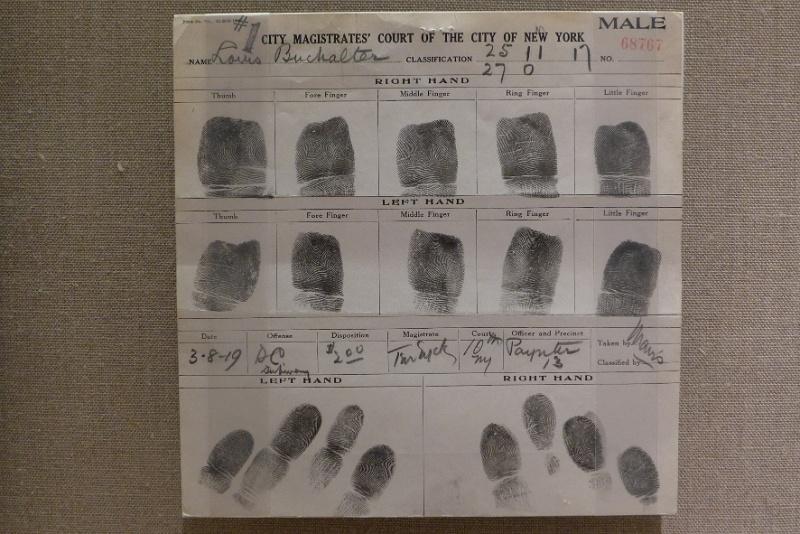 #1
MALE
CITY MAGISTRATES' COURT OF THE CITY OF NEW YORK
68767
NAME Louis Buchalter CLASSIFICATION 25 11 17 NO.
27 0
RIGHT HAND
Thumb Fore Finger Middle Finger Ring Finger Little Finger
LEFT HAND
Thumb Fore Finger Middle Finger Ring Finger Little Finger
Date Offense Disposition Magistrate Court Officer and Precinct Taken by
3-8-19 DC $2 00 10 Paynter
Subway NY 13 Classified by
LEFT HAND RIGHT HAND